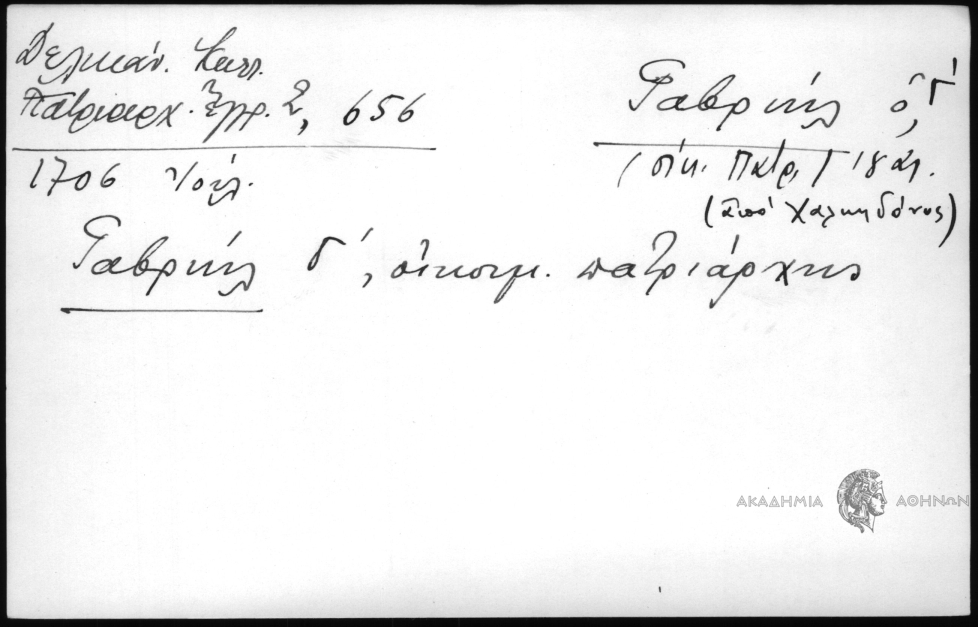 Δελικάν. Κατλ.
Πατριαρχ. Ἐγγρ. 2, 656
1706 Ἰούλ.
Γαβριήλ ὁ Γ΄
(οἰκ. Πατρ.) 18 αἰ.
(ἀπό Χαλκηδόνος)
Γαβριήλ Γ΄, οἰκουμ. πατριάρχης
ΑΚΑΔΗΜΙΑ ΑΘΗΝΩΝ